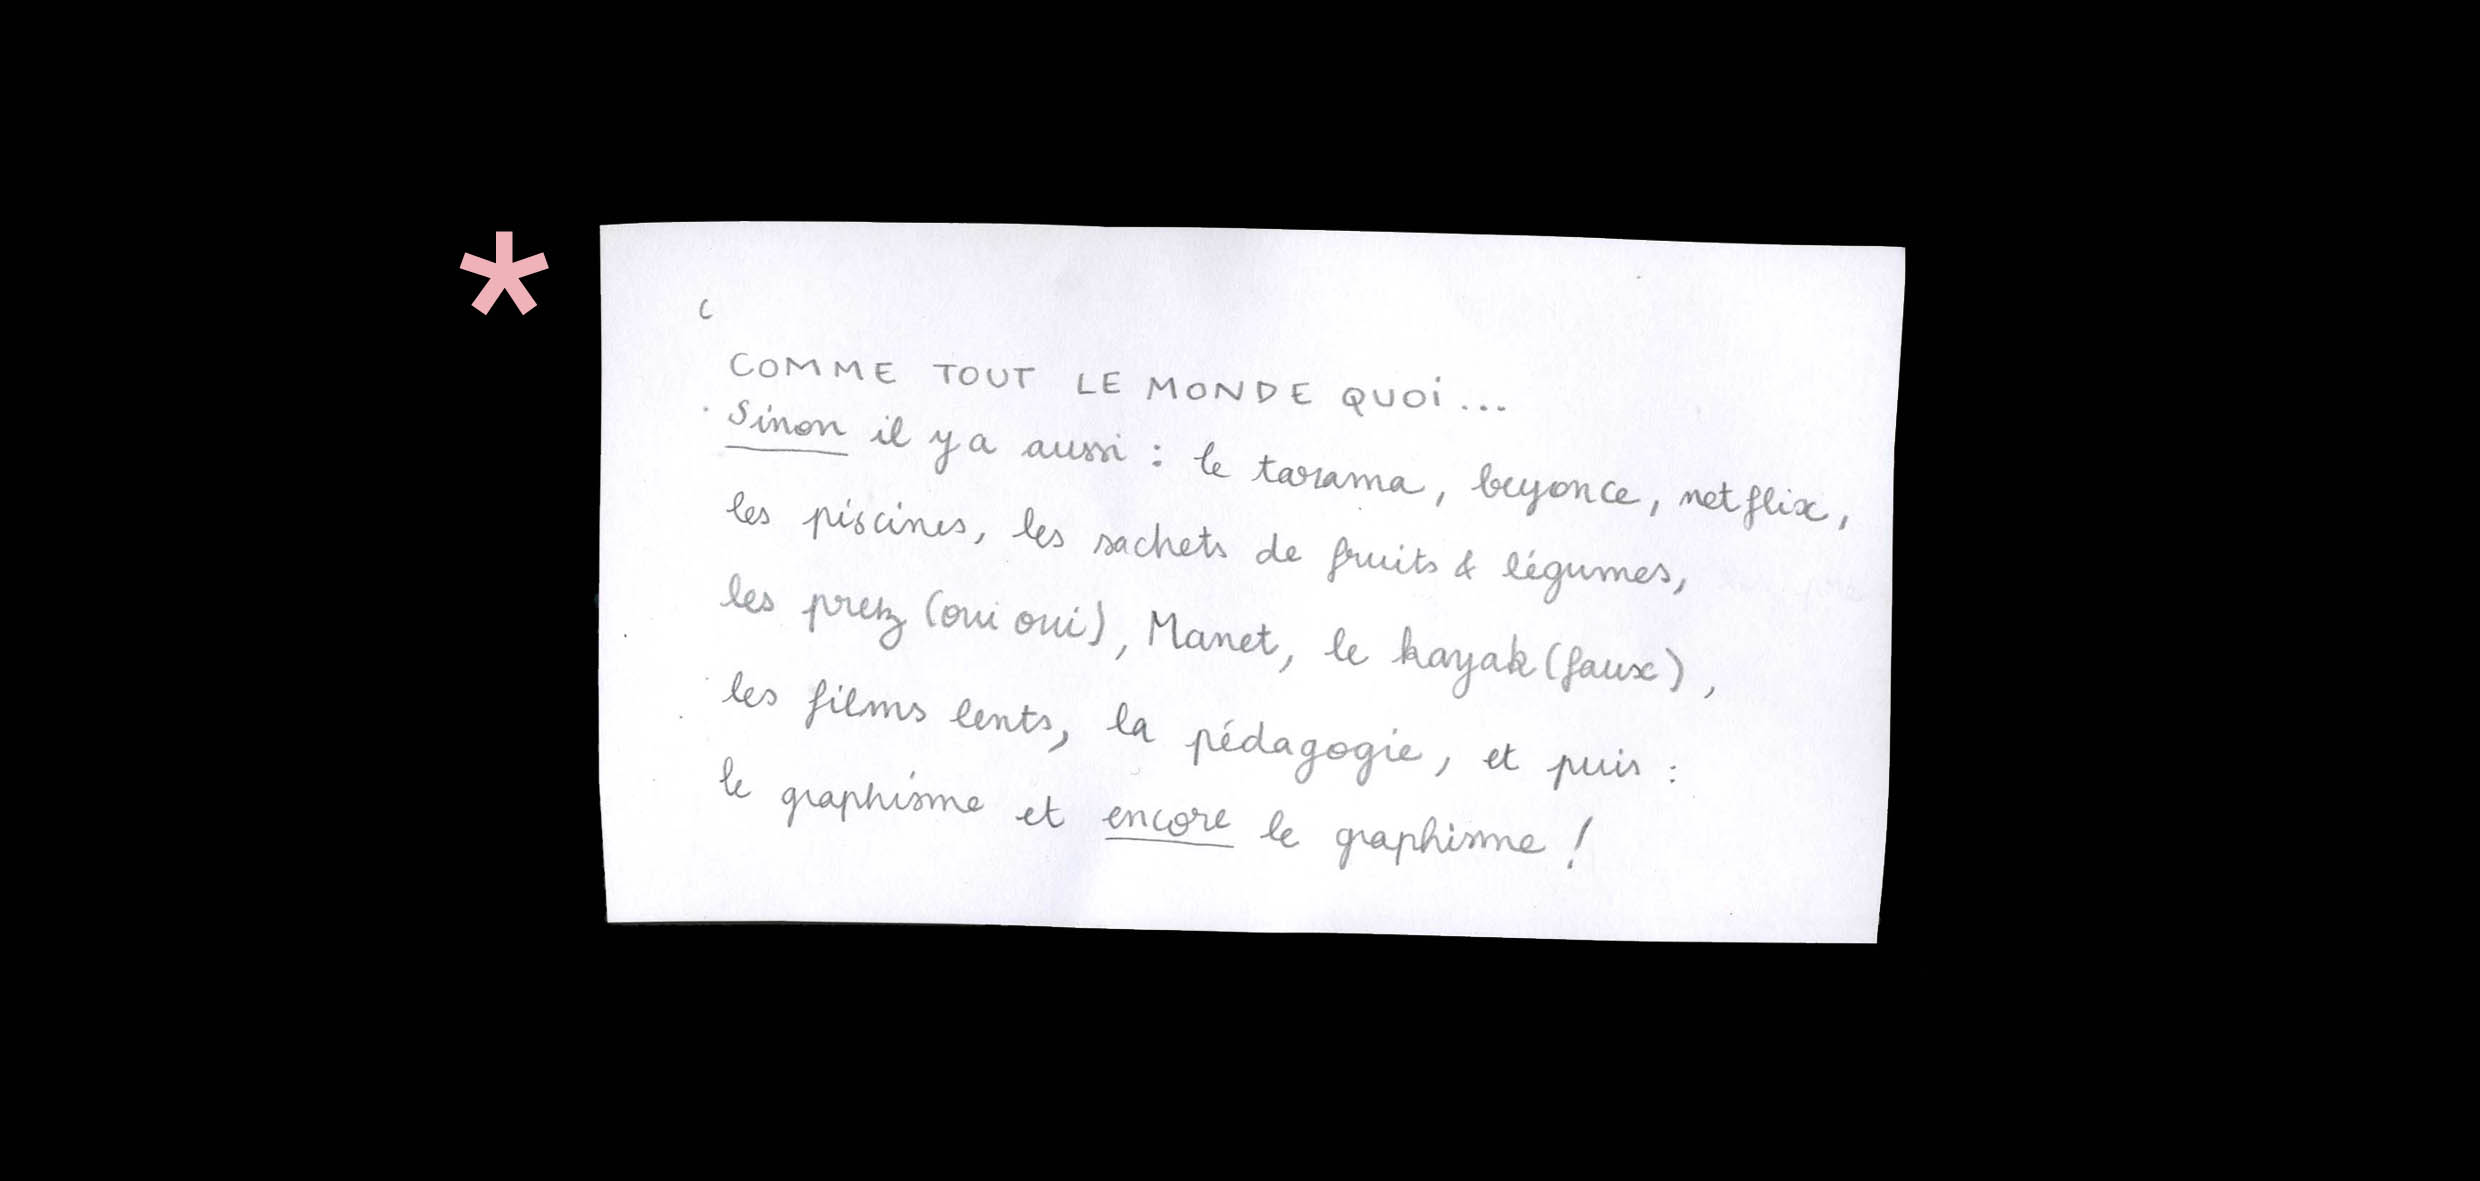 *
c
COMME TOUT LE MONDE QUOi...
Sinon il y a aussi : le tarama, beyonce, netflix,
les piscines, les sachets de fruits & légumes,
les prez (oui oui), Manet, le kayak (faux),
les films lents, la pédagogie, et puis :
le graphisme et encore le graphisme !